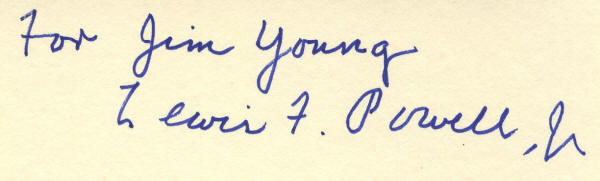 For Jim Young
Lewis F. Powell, Jr